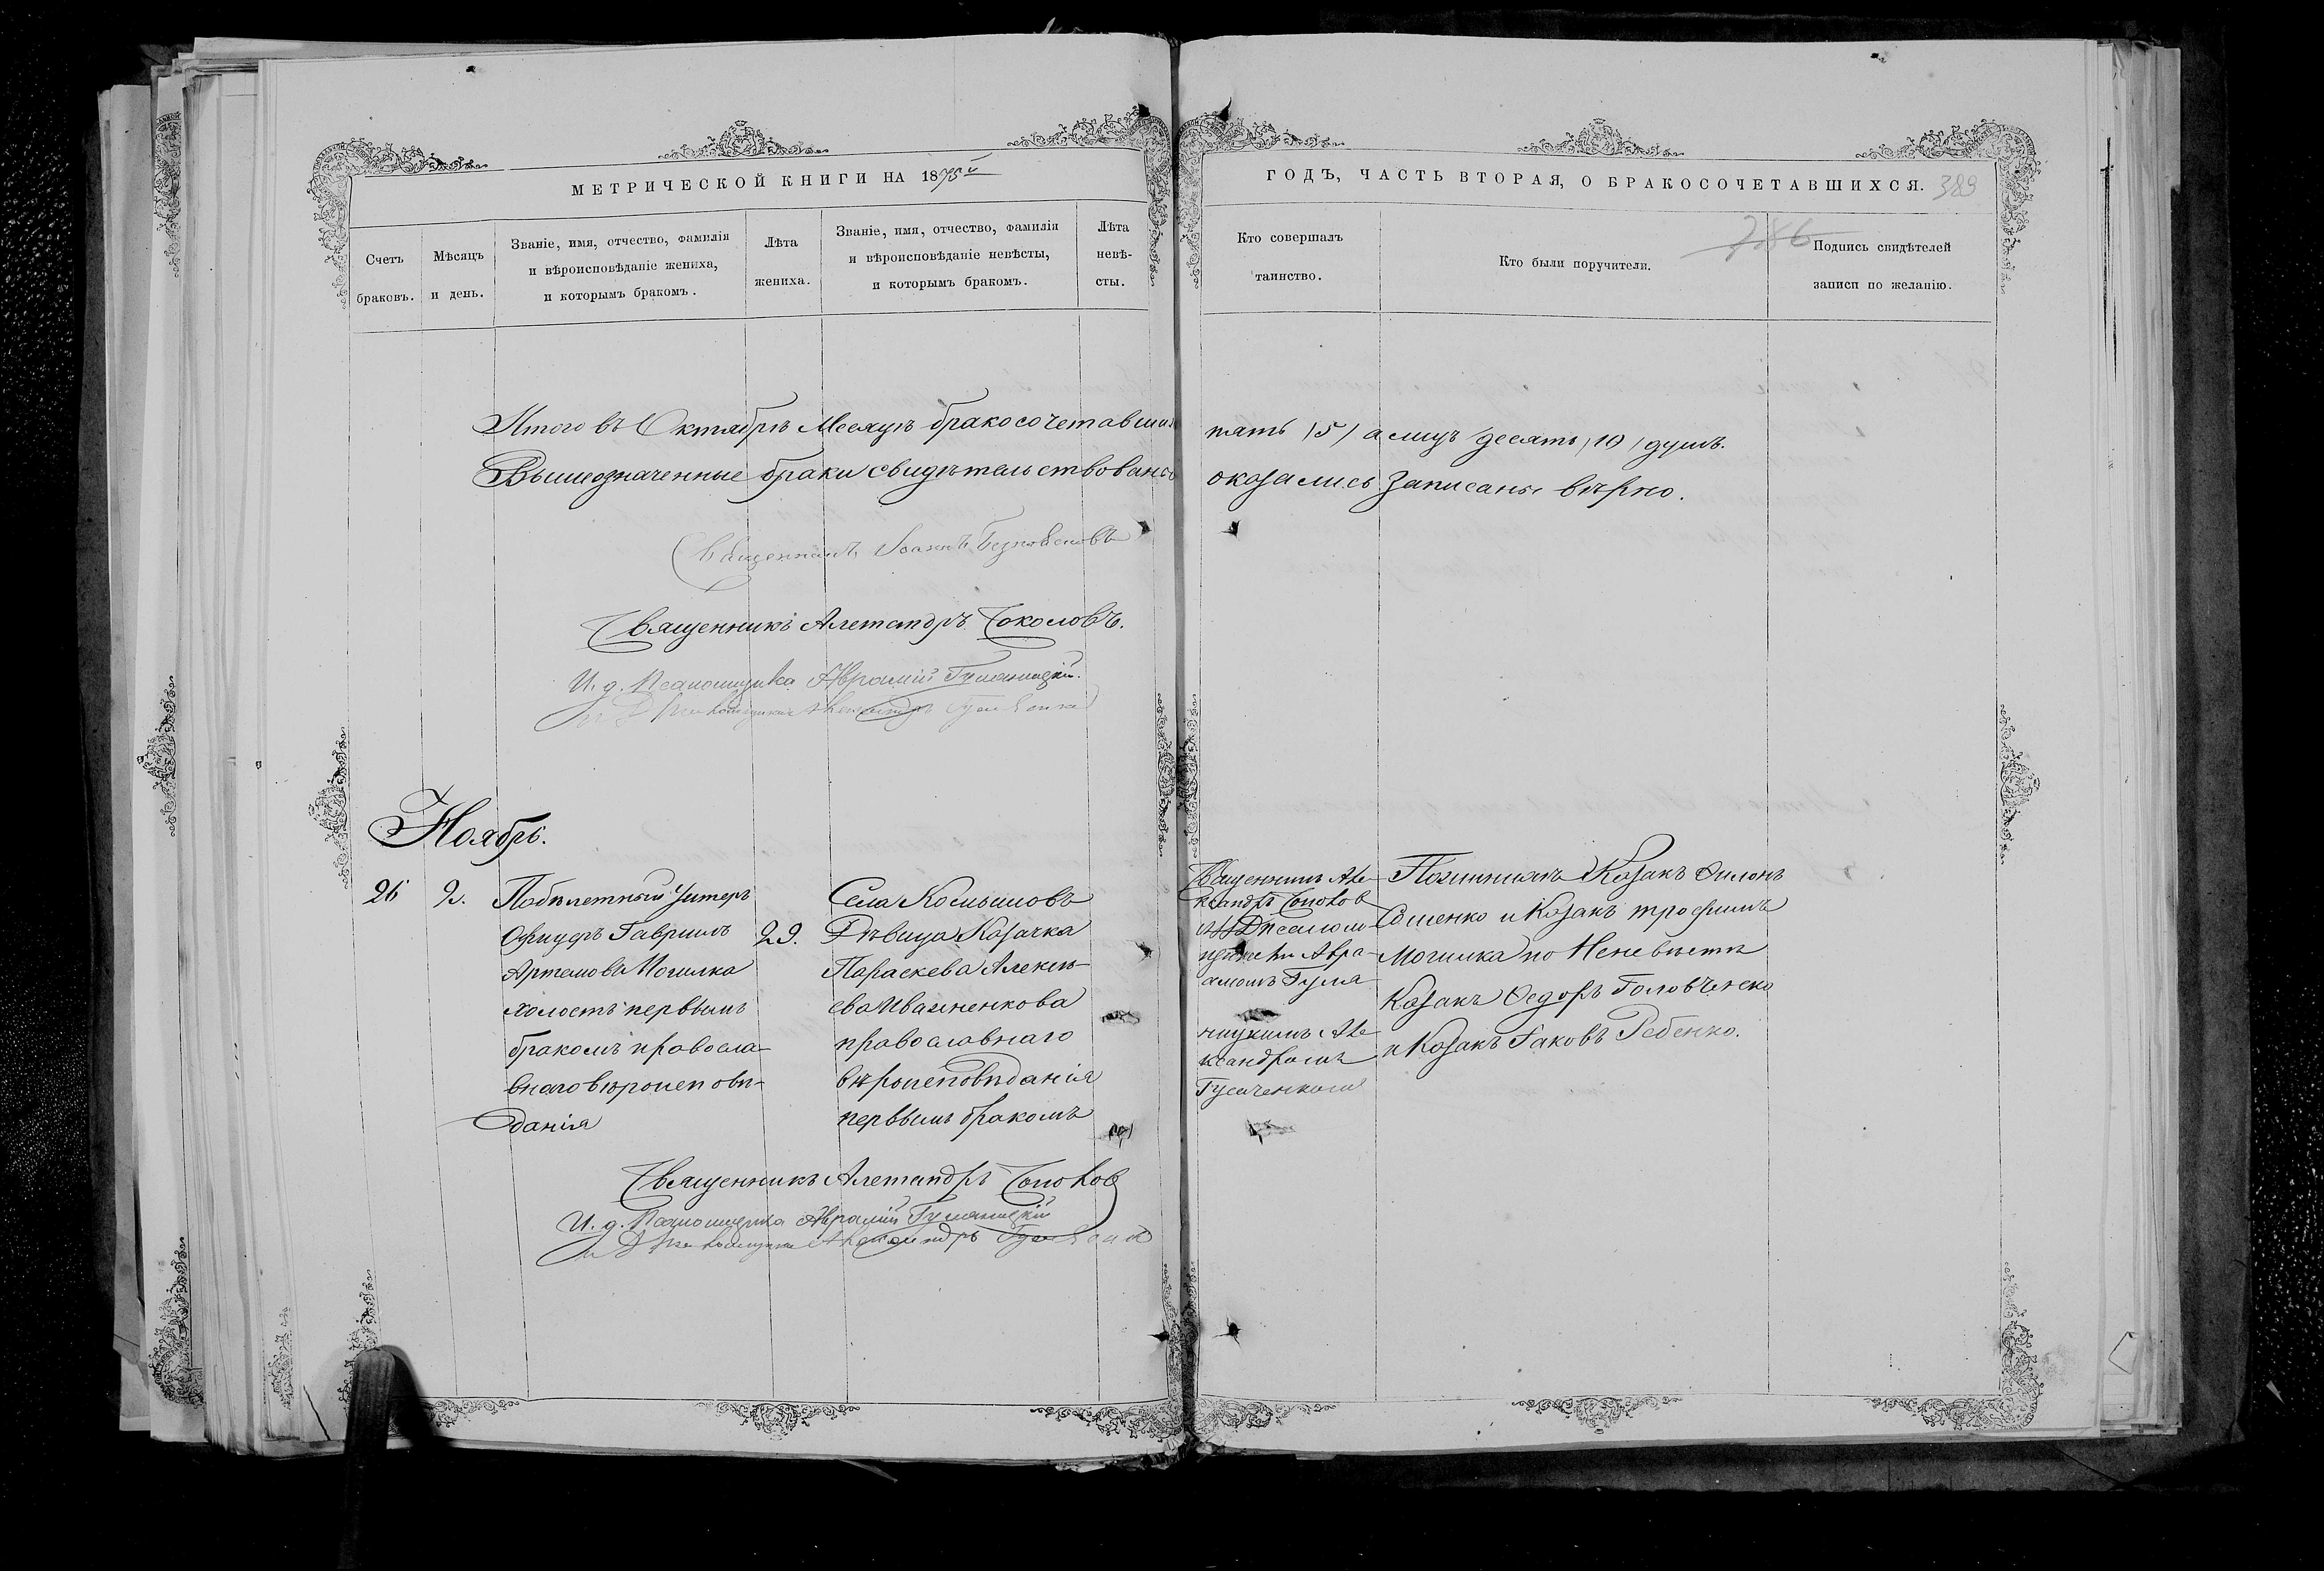 МЕТРИЧЕСКОЙ КНИГИ НА 1875й
ГОДЪ, ЧАСТЬ ВТОРАЯ, О БРАКОСОЧЕТАВШИХСЯ.
389
Счетъ
браковъ.
Мѣсяцъ
и день.
Званіе, имя, отчество, фамилія
и вѣроисповѣданіе жениха,
и которымъ бракомъ.
Лѣта
жениха.
Званіе, имя, отчество, фамилія
и вѣроисповѣданіе невѣсты,
и которымъ бракомъ.
Лѣта
невѣ-
сты.
Кто совершалъ
таинство.
Кто были поручители.
Подпись свидѣтелей
записи по желанію.
Итого въ Октябрѣ Месяцѣ бракосочетавших пять /5/ а лицъ десять /10/ душъ.
Вышеозначенные браки свидѣтельствованы оказались записаны вѣрно.
Священникъ Іоаннъ
Священникъ Александръ Соколовъ.
И. д. Псаломщика Аврамій
Александръ
Ноябрь.
26
2.
Побилетный Унтеръ
Офицеръ Гавриилъ
Артемовъ Могилка
холостъ первымъ
бракомъ правосла-
внаго вѣроисповѣ-
данія
29.
Села
Дѣвица Козачка
Параскева Алексѣ-
ева Ивашненкова
православнаго
вѣроисповѣданія
первымъ бракомъ
Священникъ Але-
ксандръ Соколов
Псалом-
Авра-
амомъ Гуля-
ницкимъ Але-
ксандромъ
Гусаченкомъ
Козакъ Филонъ
и Козакъ Трофимъ
Могилка по Невѣстѣ
Козакъ Федоръ Головченко
и Козакъ Іаковъ Ребенко.
Священникъ Александръ Соколов
И. д. Псаломщика Аврамій
Александръ